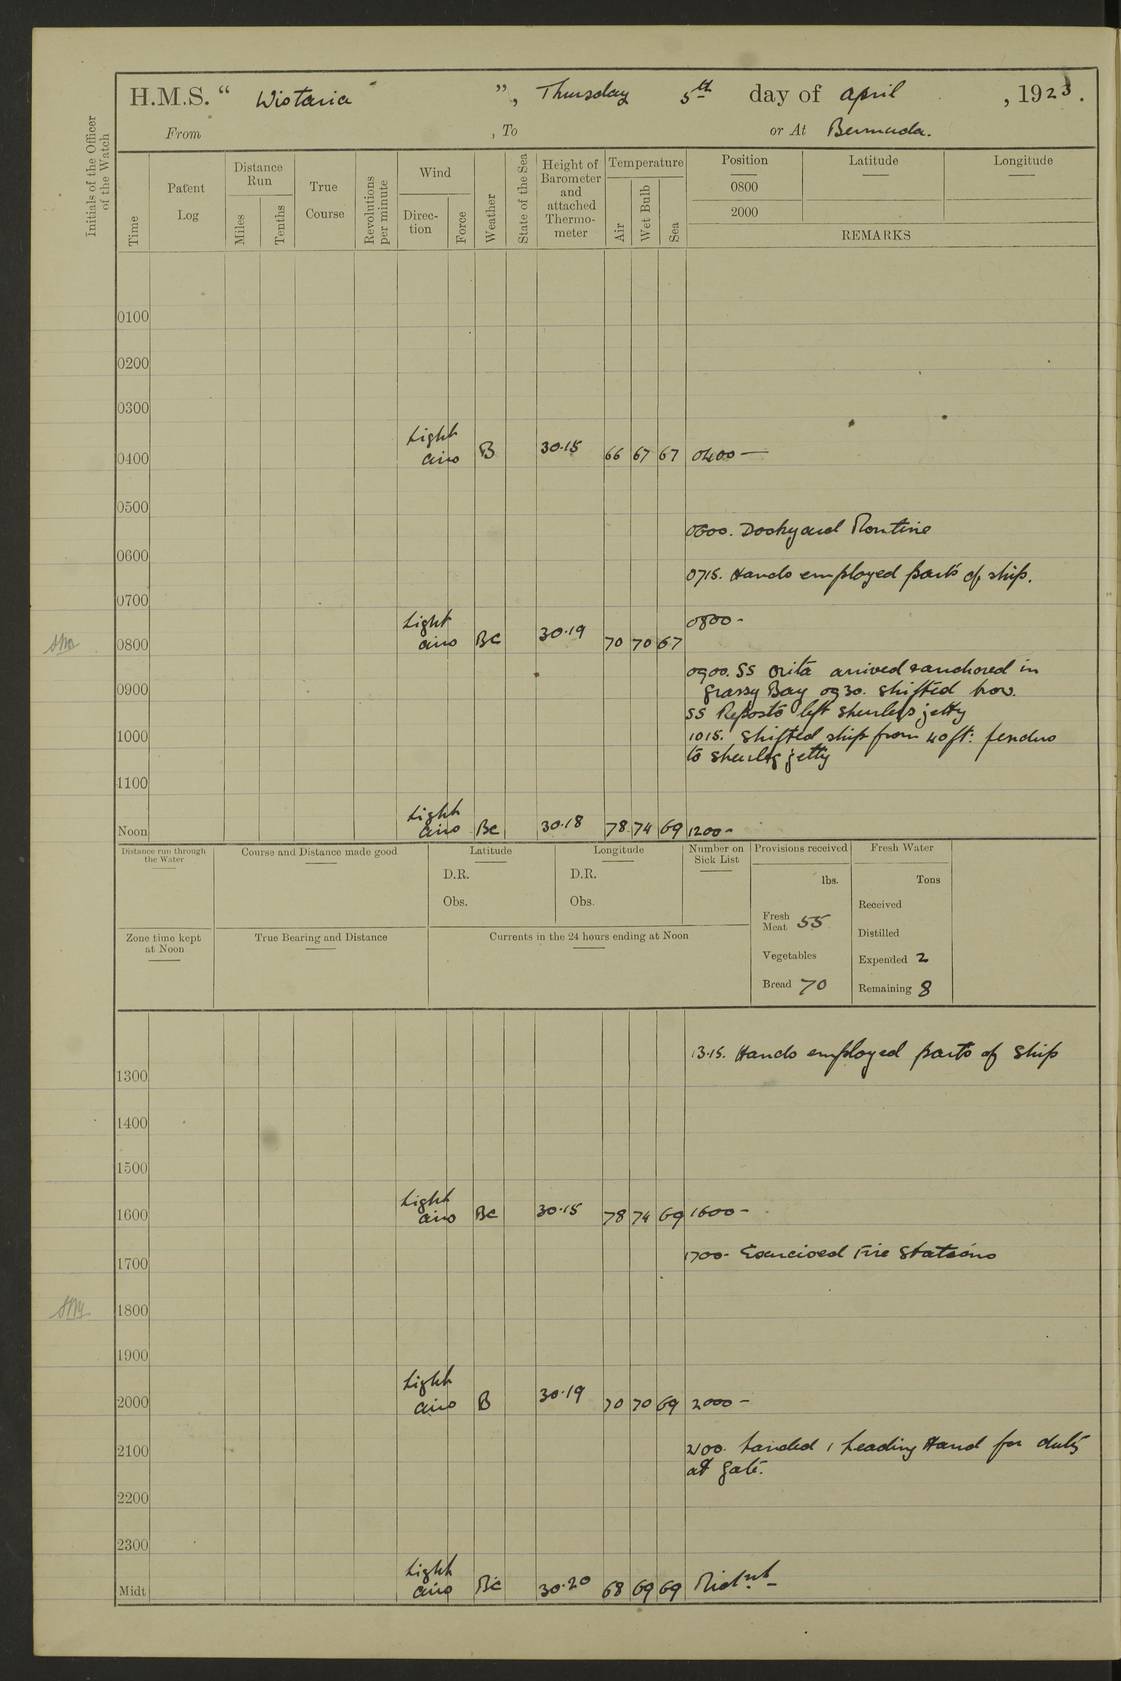 H.M.S. “ Wistaria ”, Thursday 5th day of April , 1923.
From , To or At Bermuda.
Initials of the Officer of the Watch
Time
Patent Log
Distance Run
Miles
Tenths
True Course
Revolutions per minute
Wind
Direction
Force
Weather
State of the Sea
Height of Barometer and attached Thermometer
Temperature
Air
Wet Bulb
Sea
Position Latitude Longitude
0800
2000
REMARKS
0100
0200
0300
0400 Light airs B 30.15 66 67 67 0400 —
0500
0600. Dockyard Routine
0600
0715. Hands employed parts of ship.
0700
0800 -
0800 Light airs BC 30.19 70 70 67
0900. SS Orita arrived & anchored in
0900 Grassy Bay 0930. Shifted
SS left jetty
1000 1015. Shifted ship from 40 ft: fenders
to jetty
1100
Noon Light airs BC 30.18 78 74 69 1200 -
Distance run through the Water
Course and Distance made good
Latitude
D.R.
Obs.
Longitude
D.R.
Obs.
Number on Sick List
Provisions received
lbs.
Fresh Meat 55
Vegetables
Bread 70
Fresh Water
Tons
Received
Distilled
Expended 2
Remaining 8
Zone time kept at Noon
True Bearing and Distance
Currents in the 24 hours ending at Noon
13.15. Hands employed parts of ship
1300
1400
1500
1600 Light airs BC 30.15 78 74 69 1600 -
1700 - Exercised Fire Stations
1700
1800
1900
2000 Light airs B 30.19 70 70 69 2000 -
2100 2100. Landed 1 Leading Hand for duty
at gate.
2200
2300
Midt Light airs BC 30.20 68 69 69 Midnt -